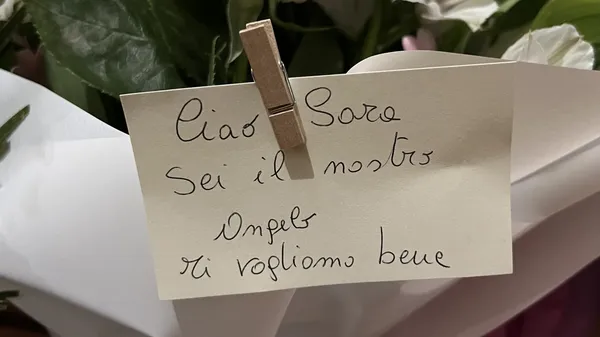 Ciao Sara
Sei il nostro
Angelo
Ti vogliamo bene